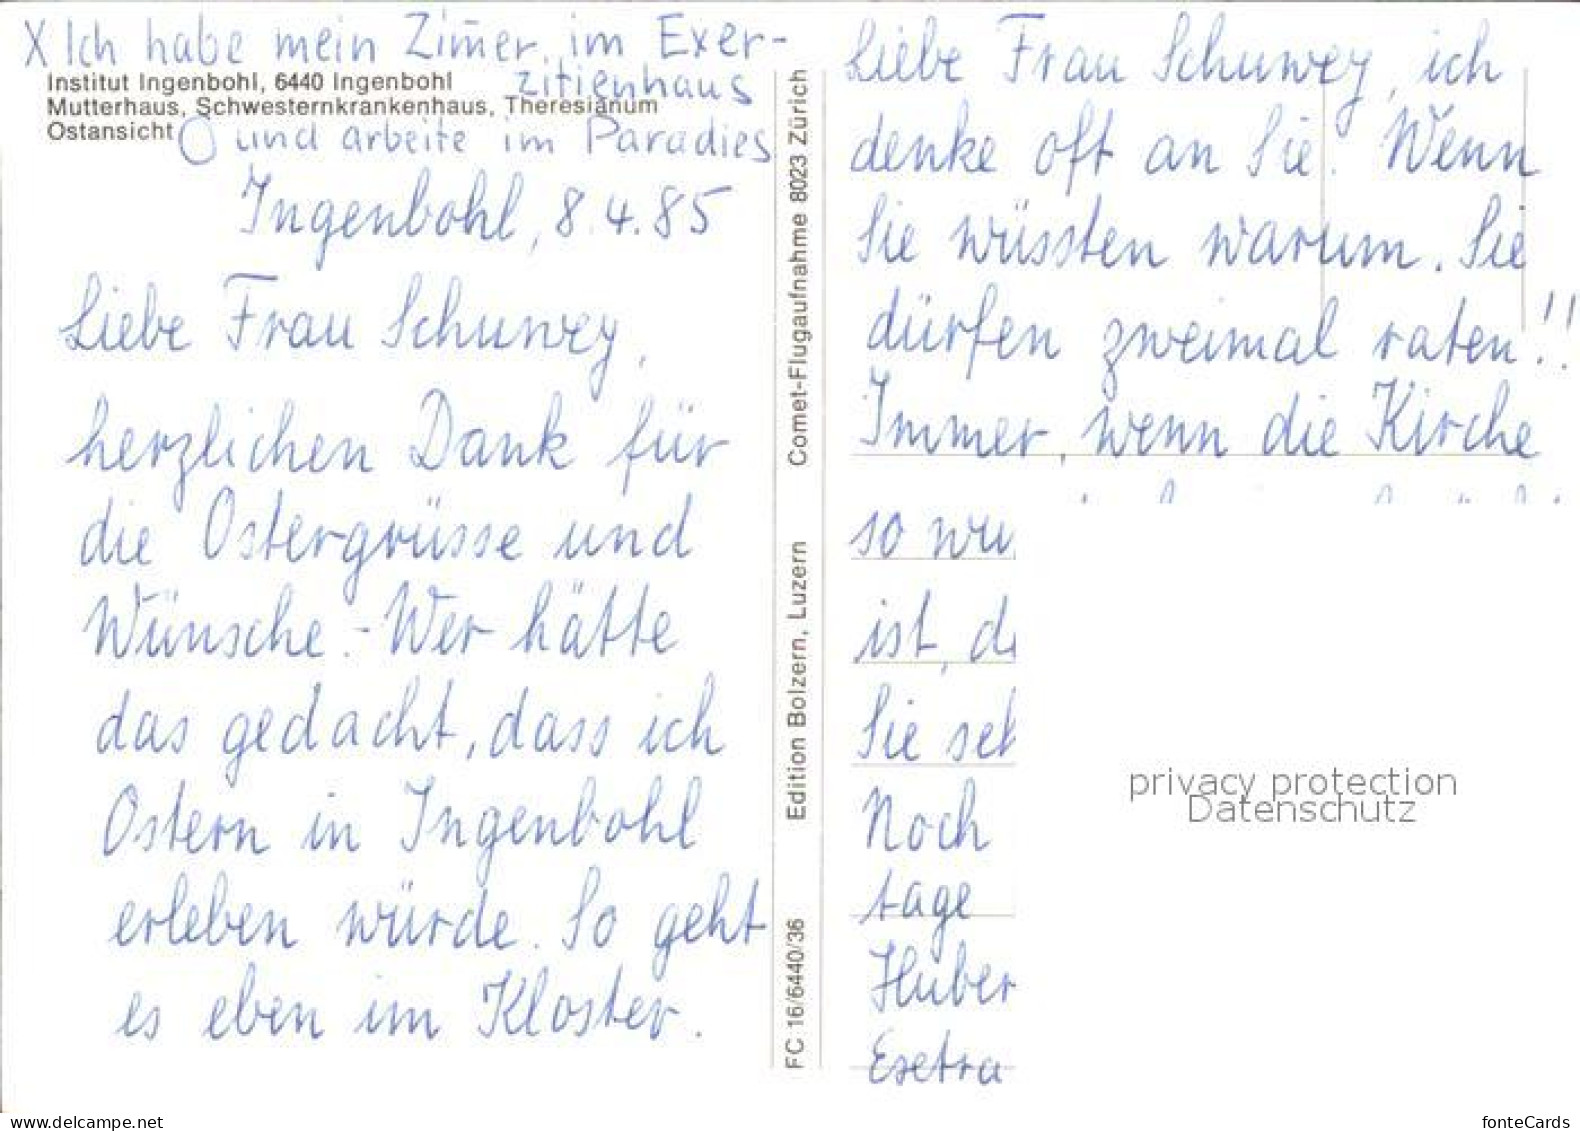 X Ich habe mein Zimmer im Exer-
zitienhaus
Institut Ingenbohl, 6440 Ingenbohl
Mutterhaus, Schwesternkrankenhaus, Theresianum
Ostansicht
O und arbeite im Paradies
Ingenbohl, 8.4.85
Liebe Frau Schuwey,
herzlichen Dank für
die Ostergrüsse und
Wünsche. - Wer hätte
das gedacht, dass ich
Ostern in Ingenbohl
erleben würde. So geht
es eben im Kloster.
FC 16/6440/36 Edition Bolzern, Luzern Comet-Flugaufnahme 8023 Zürich
Liebe Frau Schuwey, ich
denke oft an Sie. Wenn
Sie wüssten warum. Sie
dürfen zweimal raten!!
Immer, wenn die Kirche
so wu
ist, d
Sie se
Noch
tage
Huber
privacy protection
Datenschutz
www.delcampe.net
fonteCards